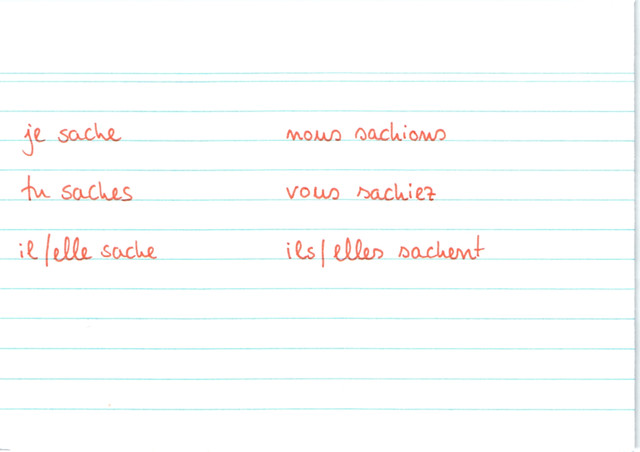 je sache nous sachions
tu saches vous sachiez
il/elle sache ils/elles sachent